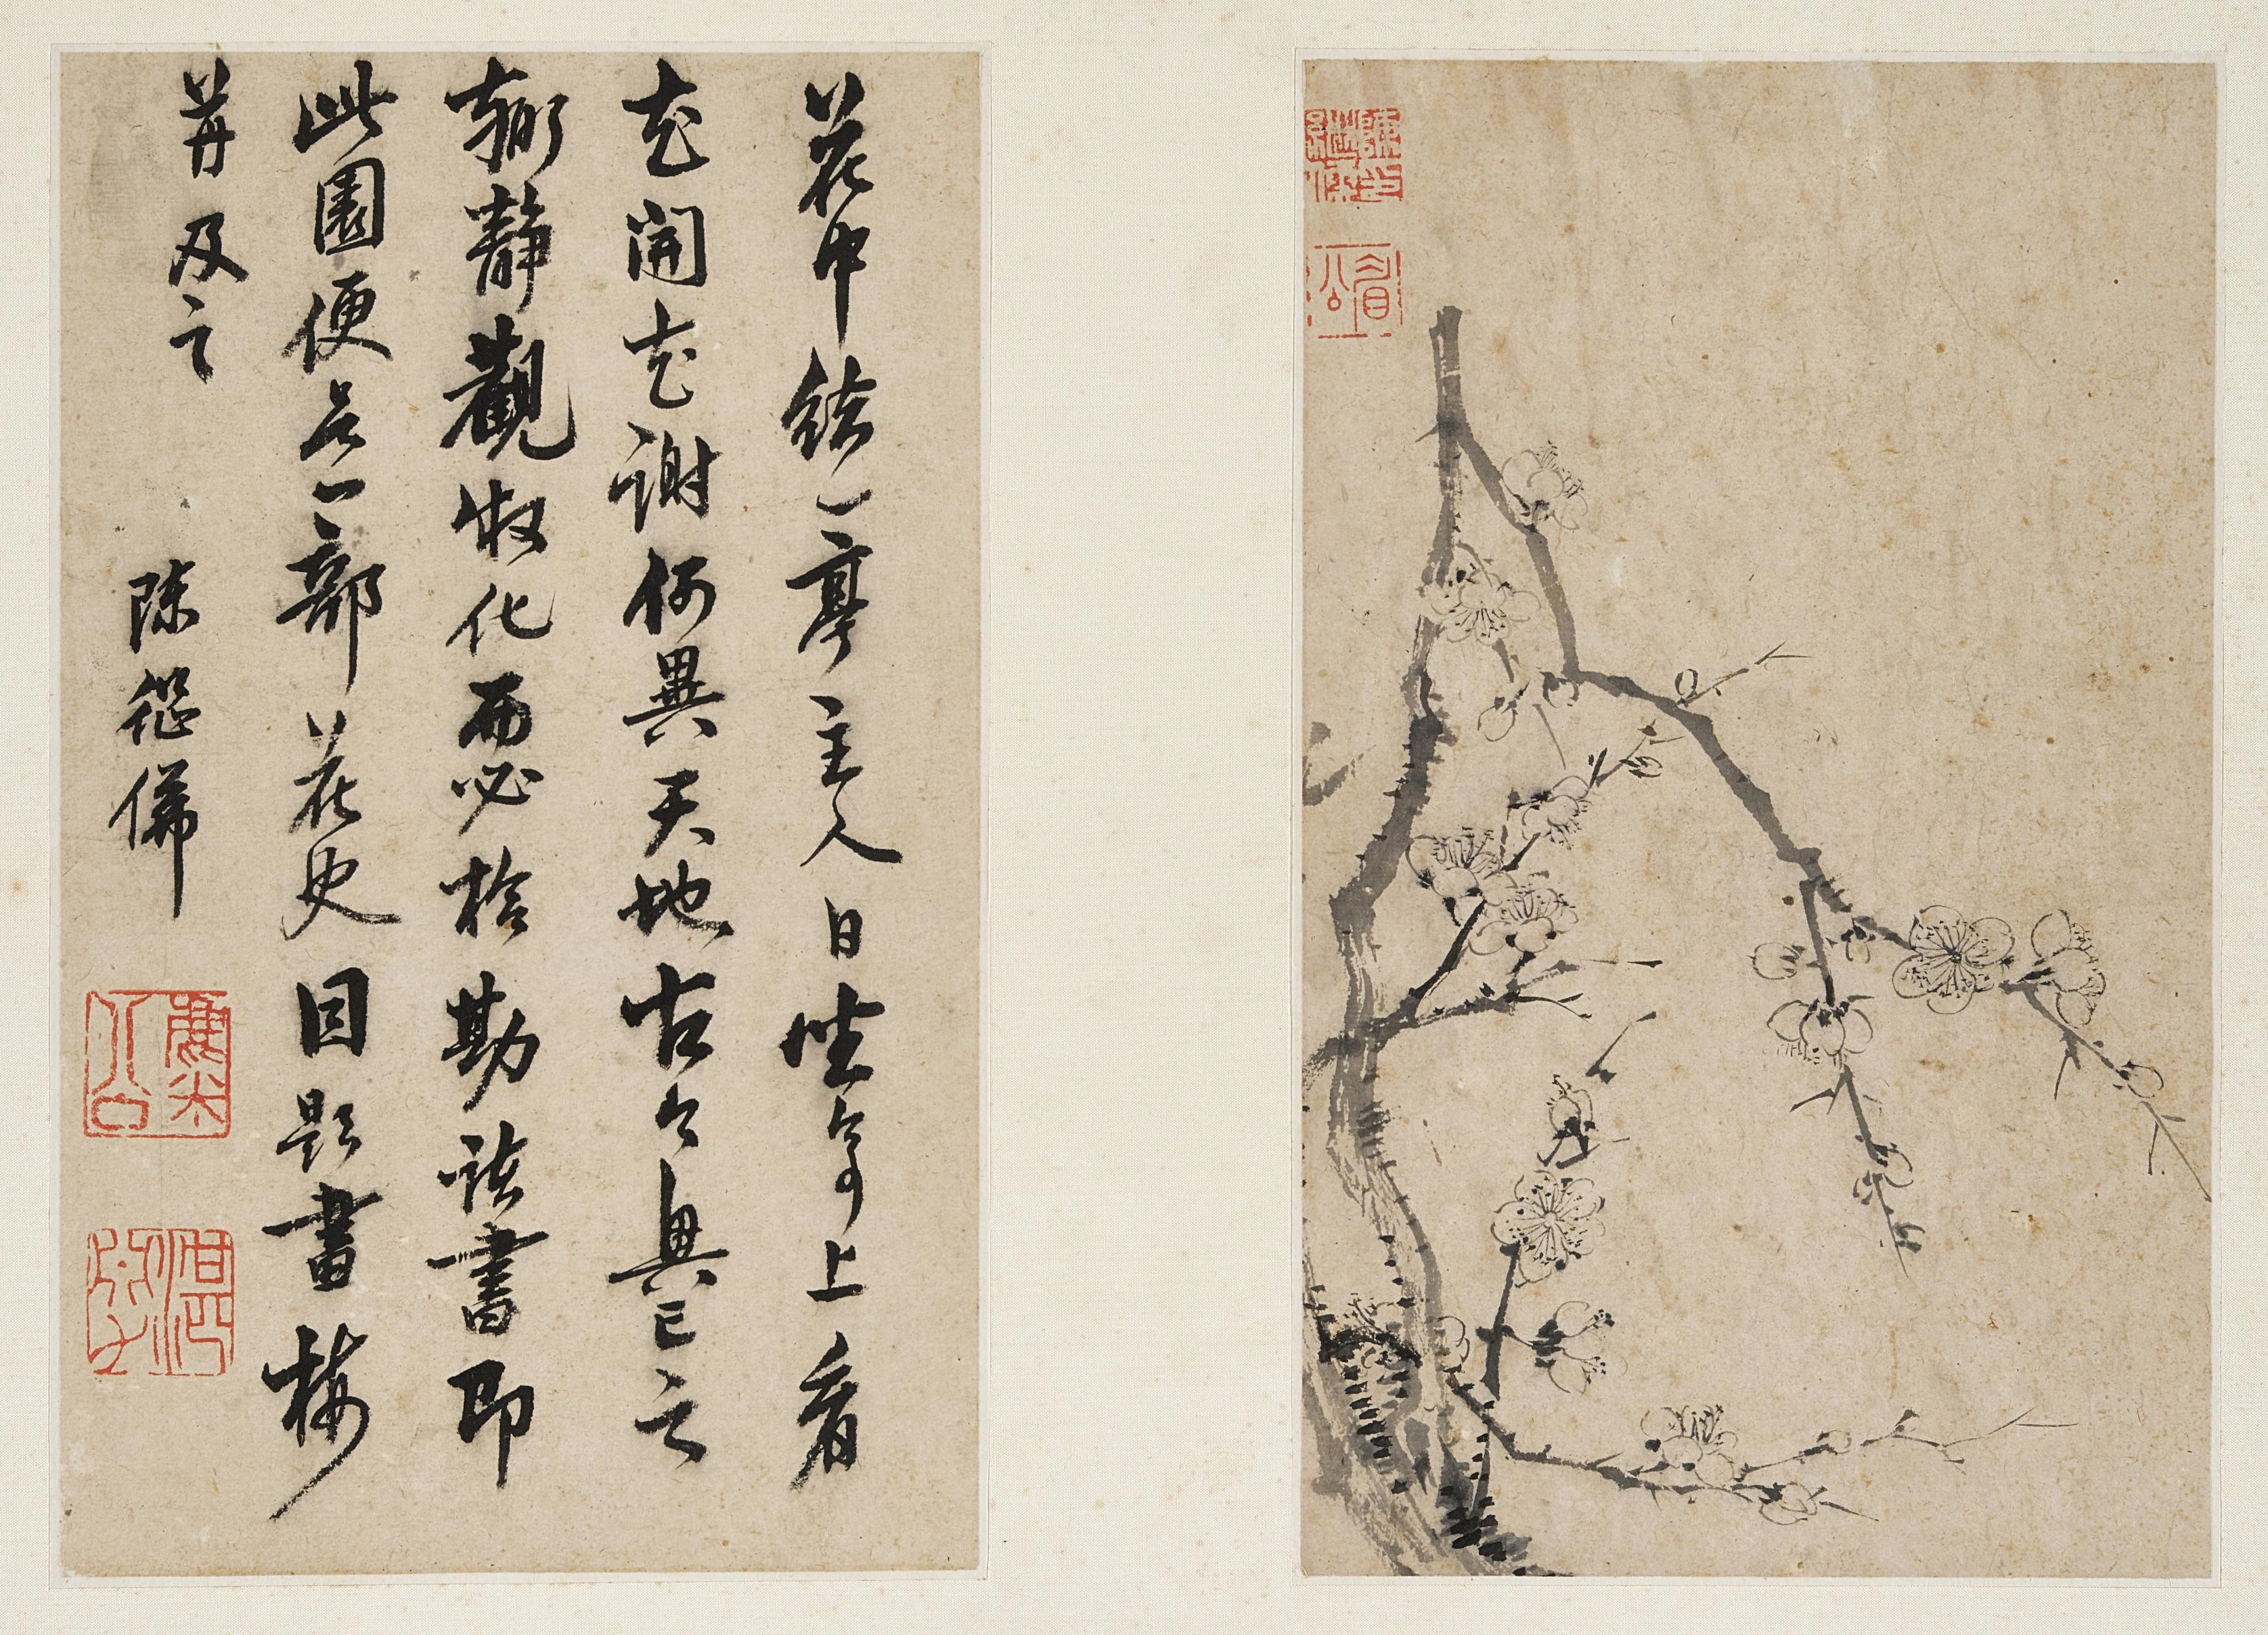 花中結一亭主人日坐亭上看
花開花謝何異天地古今興亡之
靜觀化而必勘諸書即
此園便是一部花史因題畫梅
并及之
陳繼儒
麋公
眉公